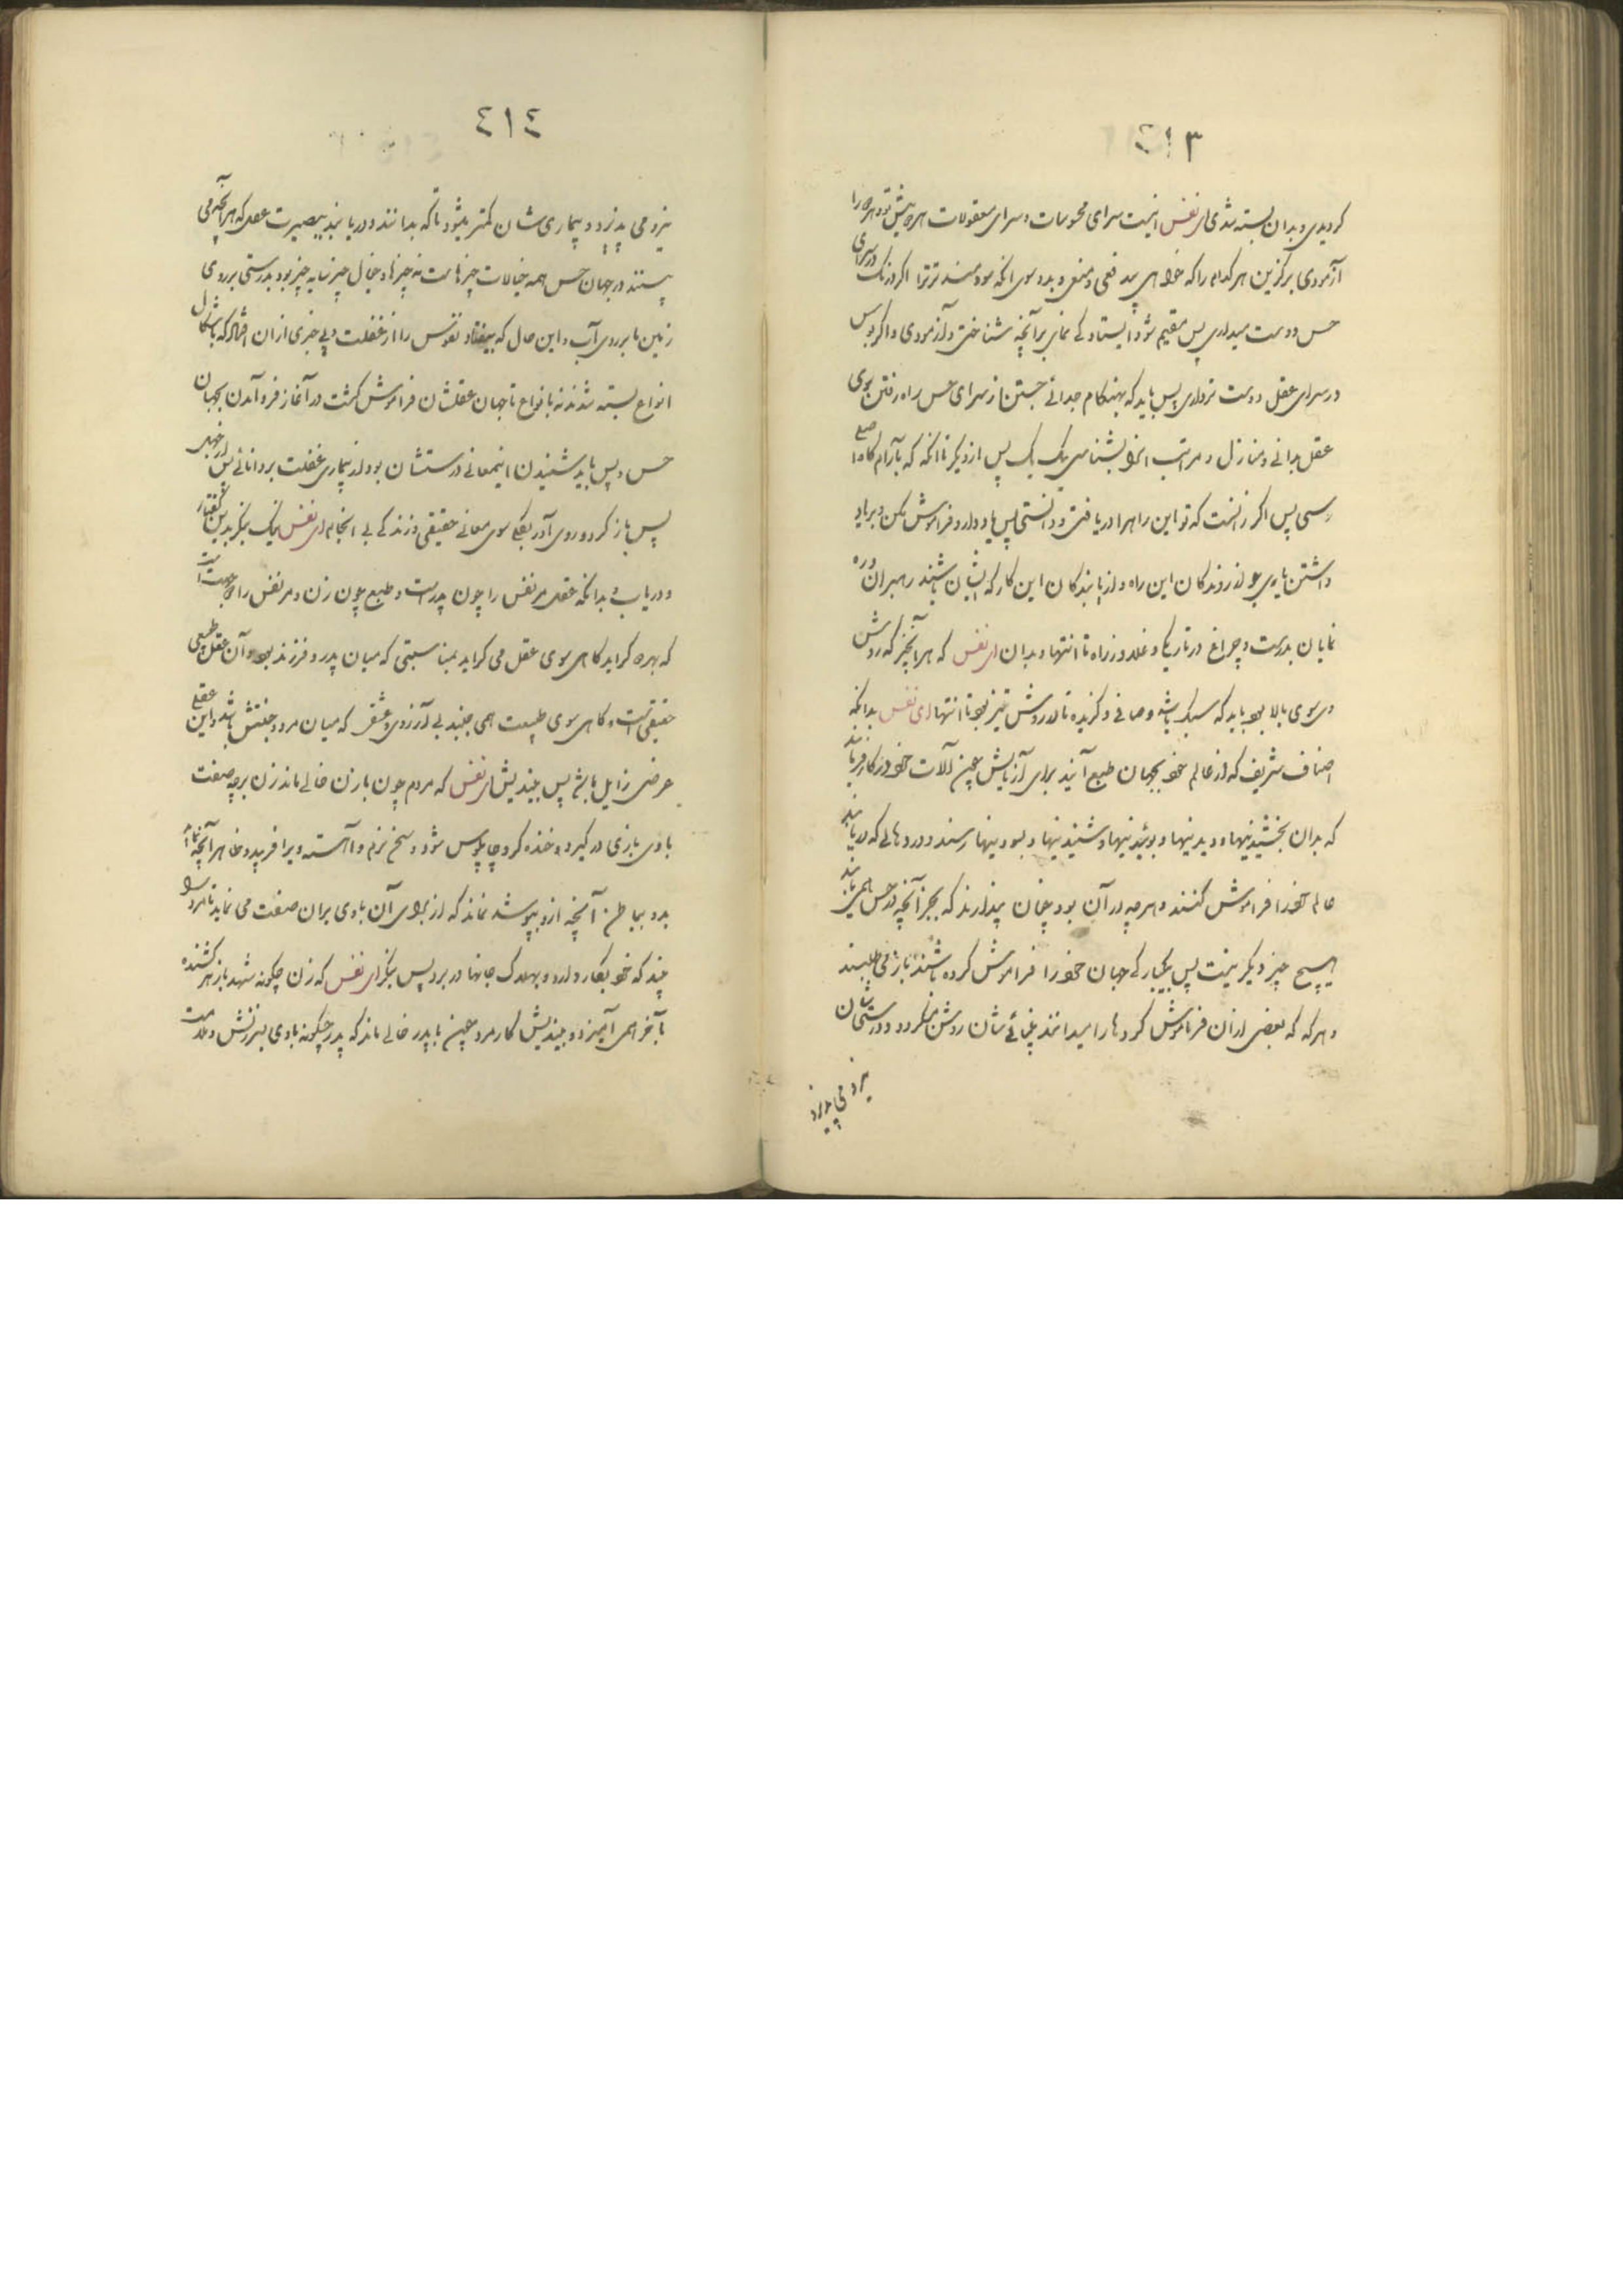 ٤١٣
گردیدی و بدان بسته شدی ای نفس اینست سرای محسوسات و سرای معقولات هر دو پیش تو و هر دو را
آزمودی برگزین هر کدام را که خواهی بی دفعی و منعی و بدو سوی آنکه سودمند تر ترا اگر درنگ در سرای
حس دوست میداری پس مقیم شو و ایستادگی نمای بر آنچه شناختی و آزمودی و اگر بودن
در سرای عقل دوست تر داری پس باید که بهنگام جدائی جستن از سرای حس راه رفتن بسوی
عقل بدانی و منازل و مراتب آنرا بشناسی یک یک پس از دیگر تا آنگه که بآرام گاه اصلی
رسی پس اگر زآنست که تو این راهرا دریافتی و دانستی پس یاد دار و فراموش مکن و بر یاد
داشتن یاری جو از روندگان این راه و از یابندگان این کار که ایشان باشند رهبران و ره
نمایان بدرست و چراغ در تاریکیها در راه تا انتها و بدان ای نفس که هر آنچیز که روشش
سوی بالا بود باید که سبک باشد و صافی و گزیده تا در روش تیز بود تا انتها ای نفس بدانکه
اصناف شریف که از عالم خود بجهان طبع آیند برای آزمایش چون آلات خود در کار فرمایند
که بدان بچشیدنیها و دیدنیها و بوئیدنیها و شنیدنیها و بسودنیها رسند و در حالی که دریابند
عالم خود را فراموش کنند و هر چه در آن بود چنان پندارند که بجز آنچه در حس همی یابند
هیچ چیز دیگر نیست پس بیکبارگی جهان خود را فراموش کرده باشند باز می طلبند
و هر که که بعضی از آن فراموش کردها را میدانند بینائی شان روشن میگردد و درستی شان
نیرو می پذیرد
٤١٤
نیرو می پذیرد و بیماری شان کمتر میشود تا که بدانند و دریابند ببصیرت عقل که هر آنچه می
بینند در جهان حس همه خیالات چیزهاست نه چیزها و خیال چیز سایه چیز بود بدرستی بر روی
زمین یا بر روی آب و این حال که بیفتاد نفوس را از غفلت و بی خبری از آن افتاد که باشکال
انواع بسته شدند نه بانواع تا جهان عقلشان فراموش گشت در آغاز فرو آمدن بجهان
حس و پس باید شنیدن اینمعانی درستشان بود از بیماری غفلت بر دانائی پس از جهل
پس باز گرد و روی آور بکلی سوی معانی حقیقی و زندگی بی انجام ای نفس نیک بنگر بدین گفتار
و دریاب و بدانکه عقل مر نفس را چون پدرست و طبع چون زن و مر نفس را دو جهت است
که بهر دو گراید گاهی سوی عقل می گراید بمناسبتی که میان پدر و فرزند بود و آن عقل طبیعی
حقیقی است و گاهی سوی طبیعت همی جنبد بی آرزوی و عشقی که میان مرد و جفتش باشد و این عقلی
عرضی زایل باشد پس بیندیش ای نفس که مردم چون با زن خالی ماند زن بر چه صفت
با وی بازی در گیرد و خنده کرد و چاپلوس شود و سخن نرم و آهسته ویرا فریبد و ظاهر آنچه نماید
بدو بباطن آنچه ازو بپوشد نماند که از برای آن با وی بر آن صفت می نماید تا مر او را
بیند که خود بکار دارد و بهلاک جانها در برد پس بنگر ای نفس که زن چگونه شهد با زهر کشنده
بآخر همی آمیزد و بیندیش کار مرد چون با پدر خالی ماند که پدر چگونه با وی سرزنش و ملامت